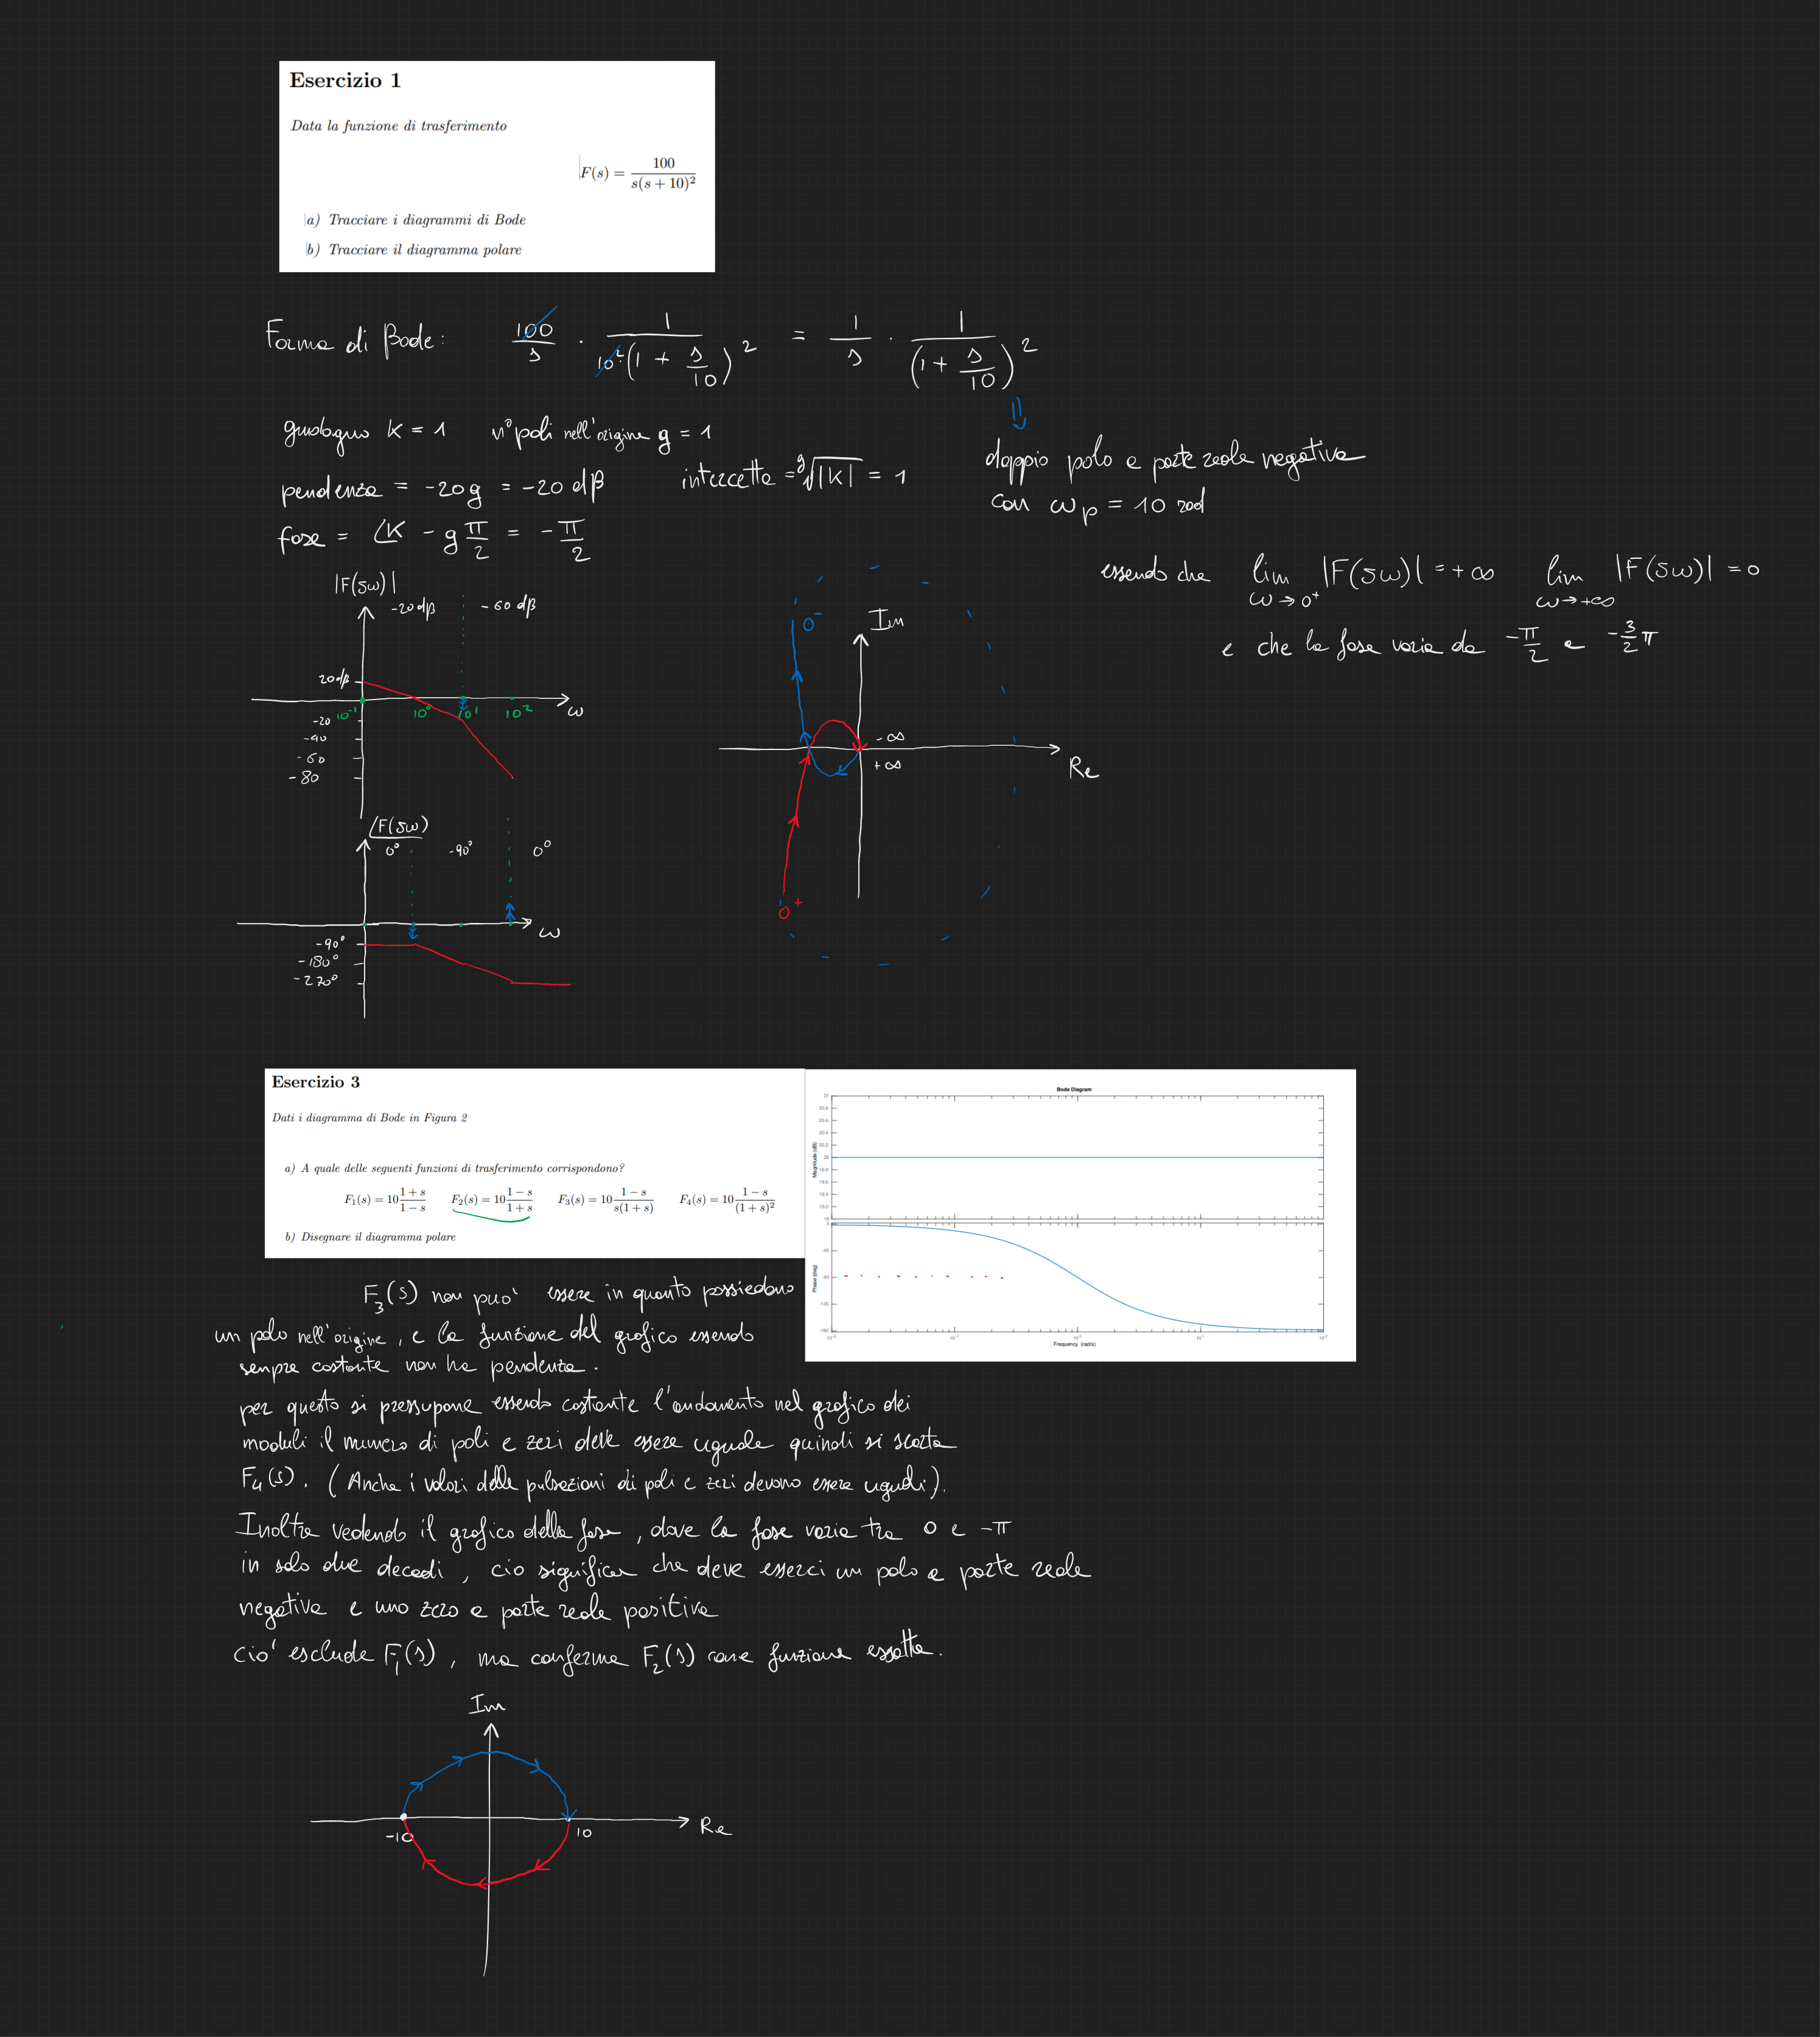 Esercizio 1
Data la funzione di trasferimento
F(s) = 100 / s(s + 10)²
a) Tracciare i diagrammi di Bode
b) Tracciare il diagramma polare
Forma di Bode: 100/s · 1/10²(1 + s/10)² = 1/s · 1/(1 + s/10)²
⇓
guadagno K = 1 n° poli nell'origine g = 1
doppio polo a parte reale negativa
pendenza = -20g = -20 dB intercetta = ᵍ√|K| = 1
con ωp = 10 rad
fase = ∠K - g π/2 = - π/2
essendo che lim ω→0⁺ |F(jω)| = +∞ lim ω→+∞ |F(jω)| = 0
e che la fase varia da -π/2 a -3/2 π
|F(jω)|
-20 dB -60 dB
20 dB
10⁻¹ 10⁰ 10¹ 10² ω
-20
-40
-60
-80
0⁻ Im
-∞
+∞
Re
0⁺
∠F(jω)
0° -90° 0°
ω
-90°
-180°
-270°
Esercizio 3
Dati i diagramma di Bode in Figura 2
a) A quale delle seguenti funzioni di trasferimento corrispondono?
F₁(s) = 10 (1 + s)/(1 − s) F₂(s) = 10 (1 − s)/(1 + s) F₃(s) = 10 (1 − s)/s(1 + s) F₄(s) = 10 (1 − s)/(1 + s)²
b) Disegnare il diagramma polare
Bode Diagram
Magnitude (dB)
21
20.8
20.6
20.4
20.2
20
19.8
19.6
19.4
19.2
19
Phase (deg)
0
-45
-90
-135
-180
10⁻¹ 10⁰ 10¹ 10²
Frequency (rad/s)
F₃(s) non puo' essere in quanto possiedono
un polo nell'origine, e la funzione del grafico essendo
sempre costante non ha pendenza.
per questo si pressupone essendo costante l'andamento nel grafico dei
moduli il numero di poli e zeri deve essere uguale quindi si scarta
F₄(s). (Anche i valori delle pulsazioni di poli e zeri devono essere uguali).
Inoltre vedendo il grafico della fase, dove la fase varia tra 0 e -π
in solo due decadi, cio significa che deve esserci un polo a parte reale
negativa e uno zero a parte reale positiva
cio' esclude F₁(s), ma conferma F₂(s) come funzione esatta.
Im
-10 10 Re